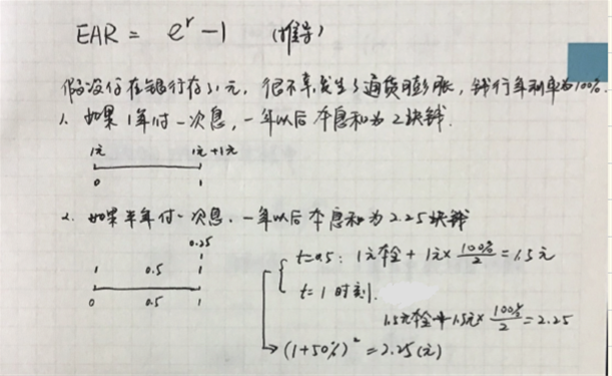 EAR = e^r - 1 (推导)
假设你在银行存了1元，很不幸发生了通货膨胀，银行年利率为100%.
1. 如果1年付一次息，一年以后本息和为2块钱.
1元 1元+1元
0 1
2. 如果半年付一次息. 一年以后本息和为2.25块钱
0.25
1 0.5 1
0 0.5 1
t=0.5: 1元本金 + 1元× 100%/2 = 1.5元
t=1时刻.
1.5元本金+1.5元× 100%/2 = 2.25
(1+50%)² = 2.25(元)